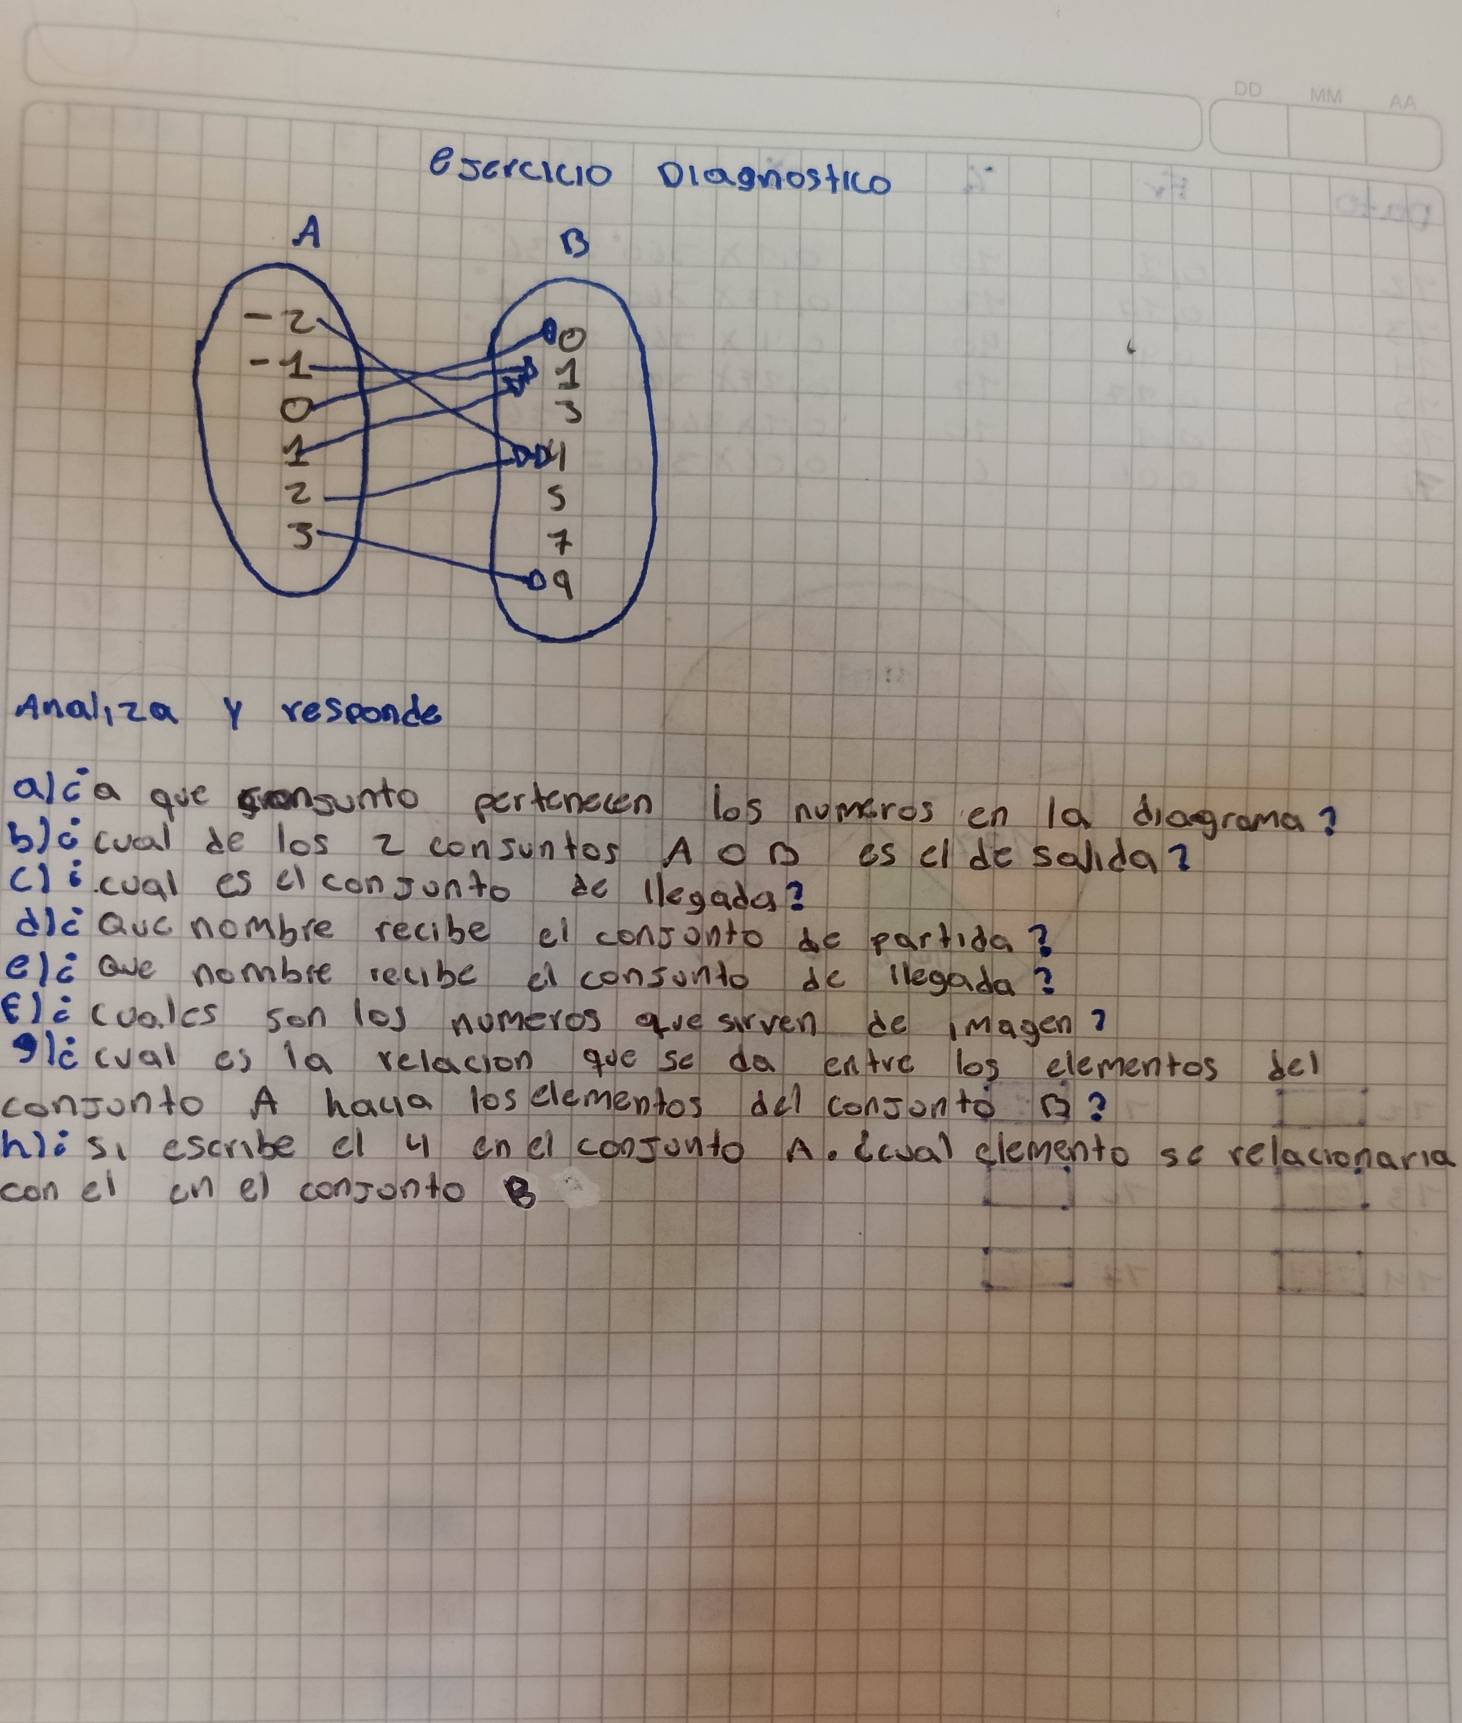 DD MM AA
eJercicio Diagnostico
A B
-2
-1
0
1
2
3
0
1
3
4
5
7
9
Analiza y responde
a)¿a que conjunto pertenecen los numeros en la diagrama?
b)¿cual de los 2 conjuntos A O B es el de salida?
c)¿cual es el conjunto de llegada?
d)¿Que nombre recibe el conjonto de partida?
e)¿Que nombre recibe el conjunto de llegada?
F)¿cuales son los numeros que sirven de imagen?
g)¿cual es la relacion que se da entre los elementos del
conjonto A hacia los elementos del conjonto B?
h)¿si escribe el 4 en el conjonto A. ¿cual elemento se relacionaria
con el en el conjonto B